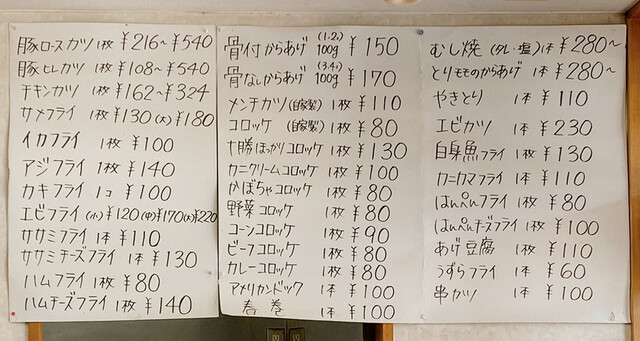 豚ロースカツ 1枚 ¥216~¥540
豚ヒレカツ 1枚 ¥108~¥540
チキンカツ 1枚 ¥162~¥324
サメフライ 1枚 ¥130(大)¥180
イカフライ ¥100
アジフライ 1枚 ¥140
カキフライ 1コ ¥100
エビフライ(小)¥120(中)¥170(大)¥220
ササミフライ 1本 ¥110
ササミチーズフライ 1本 ¥130
ハムフライ 1枚 ¥80
ハムチーズフライ 1枚 ¥140
骨付からあげ (1.2.) 100g ¥150
骨なしからあげ (3.4.) 100g ¥170
メンチカツ(自家製) 1枚 ¥110
コロッケ (自家製) 1枚 ¥80
十勝ほっかりコロッケ 1枚 ¥130
カニクリームコロッケ 1枚 ¥100
かぼちゃコロッケ 1枚 ¥80
野菜コロッケ 1枚 ¥80
コーンコロッケ 1枚 ¥90
ビーフコロッケ 1枚 ¥80
カレーコロッケ 1枚 ¥80
アメリカンドック 1本 ¥100
春巻 1本 ¥100
むし焼(タレ・塩)1本 ¥280~
とりモモのからあげ 1本 ¥280~
やきとり 1本 ¥110
エビカツ 1本 ¥230
白身魚フライ 1枚 ¥130
カニカマフライ 1本 ¥110
はんぺんフライ 1枚 ¥80
はんぺんチーズフライ 1枚 ¥100
あげ豆腐 1枚 ¥110
うずらフライ 1本 ¥60
串カツ 1本 ¥100